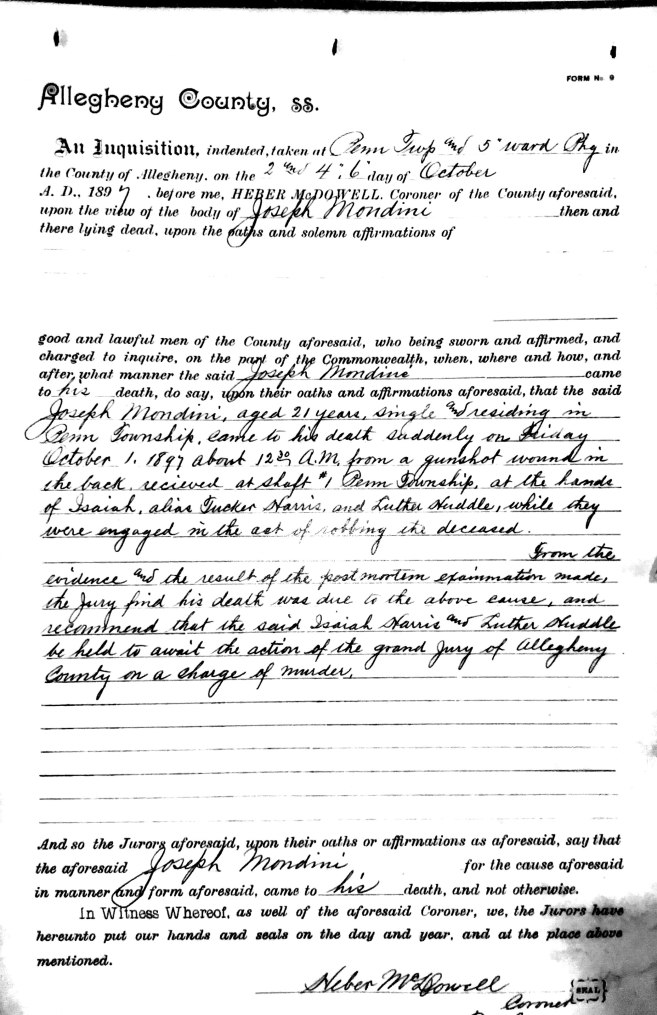 FORM No 9
Allegheny County, ss.
An Inquisition, indented, taken at Penn Twp and 5" ward Phg in
the County of Allegheny, on the 2 and 4", 6" day of October
A. D., 1897, before me, HEBER McDOWELL, Coroner of the County aforesaid,
upon the view of the body of Joseph Mondini then and
there lying dead, upon the oaths and solemn affirmations of
good and lawful men of the County aforesaid, who being sworn and affirmed, and
charged to inquire, on the part of the Commonwealth, when, where and how, and
after what manner the said Joseph Mondini came
to his death, do say, upon their oaths and affirmations aforesaid, that the said
Joseph Mondini, aged 21 years, single and residing in
Penn Township, came to his death suddenly on Friday
October 1. 1897 about 12 30 A.M. from a gunshot wound in
the back, recieved at Shaft #1 Penn Township, at the hands
of Isaiah, alias Tucker Harris, and Luther Huddle, while they
were engaged in the act of robbing the deceased.
From the
evidence and the result of the postmortem examination made,
the Jury find his death was due to the above cause, and
recommend that the said Isaiah Harris and Luther Huddle
be held to await the action of the grand Jury of Allegheny
County on a charge of murder.
And so the Jurors aforesaid, upon their oaths or affirmations as aforesaid, say that
the aforesaid Joseph Mondini for the cause aforesaid
in manner and form aforesaid, came to his death, and not otherwise.
In Witness Whereof, as well of the aforesaid Coroner, we, the Jurors have
hereunto put our hands and seals on the day and year, and at the place above
mentioned.
Heber McDowell SEAL
Coroner